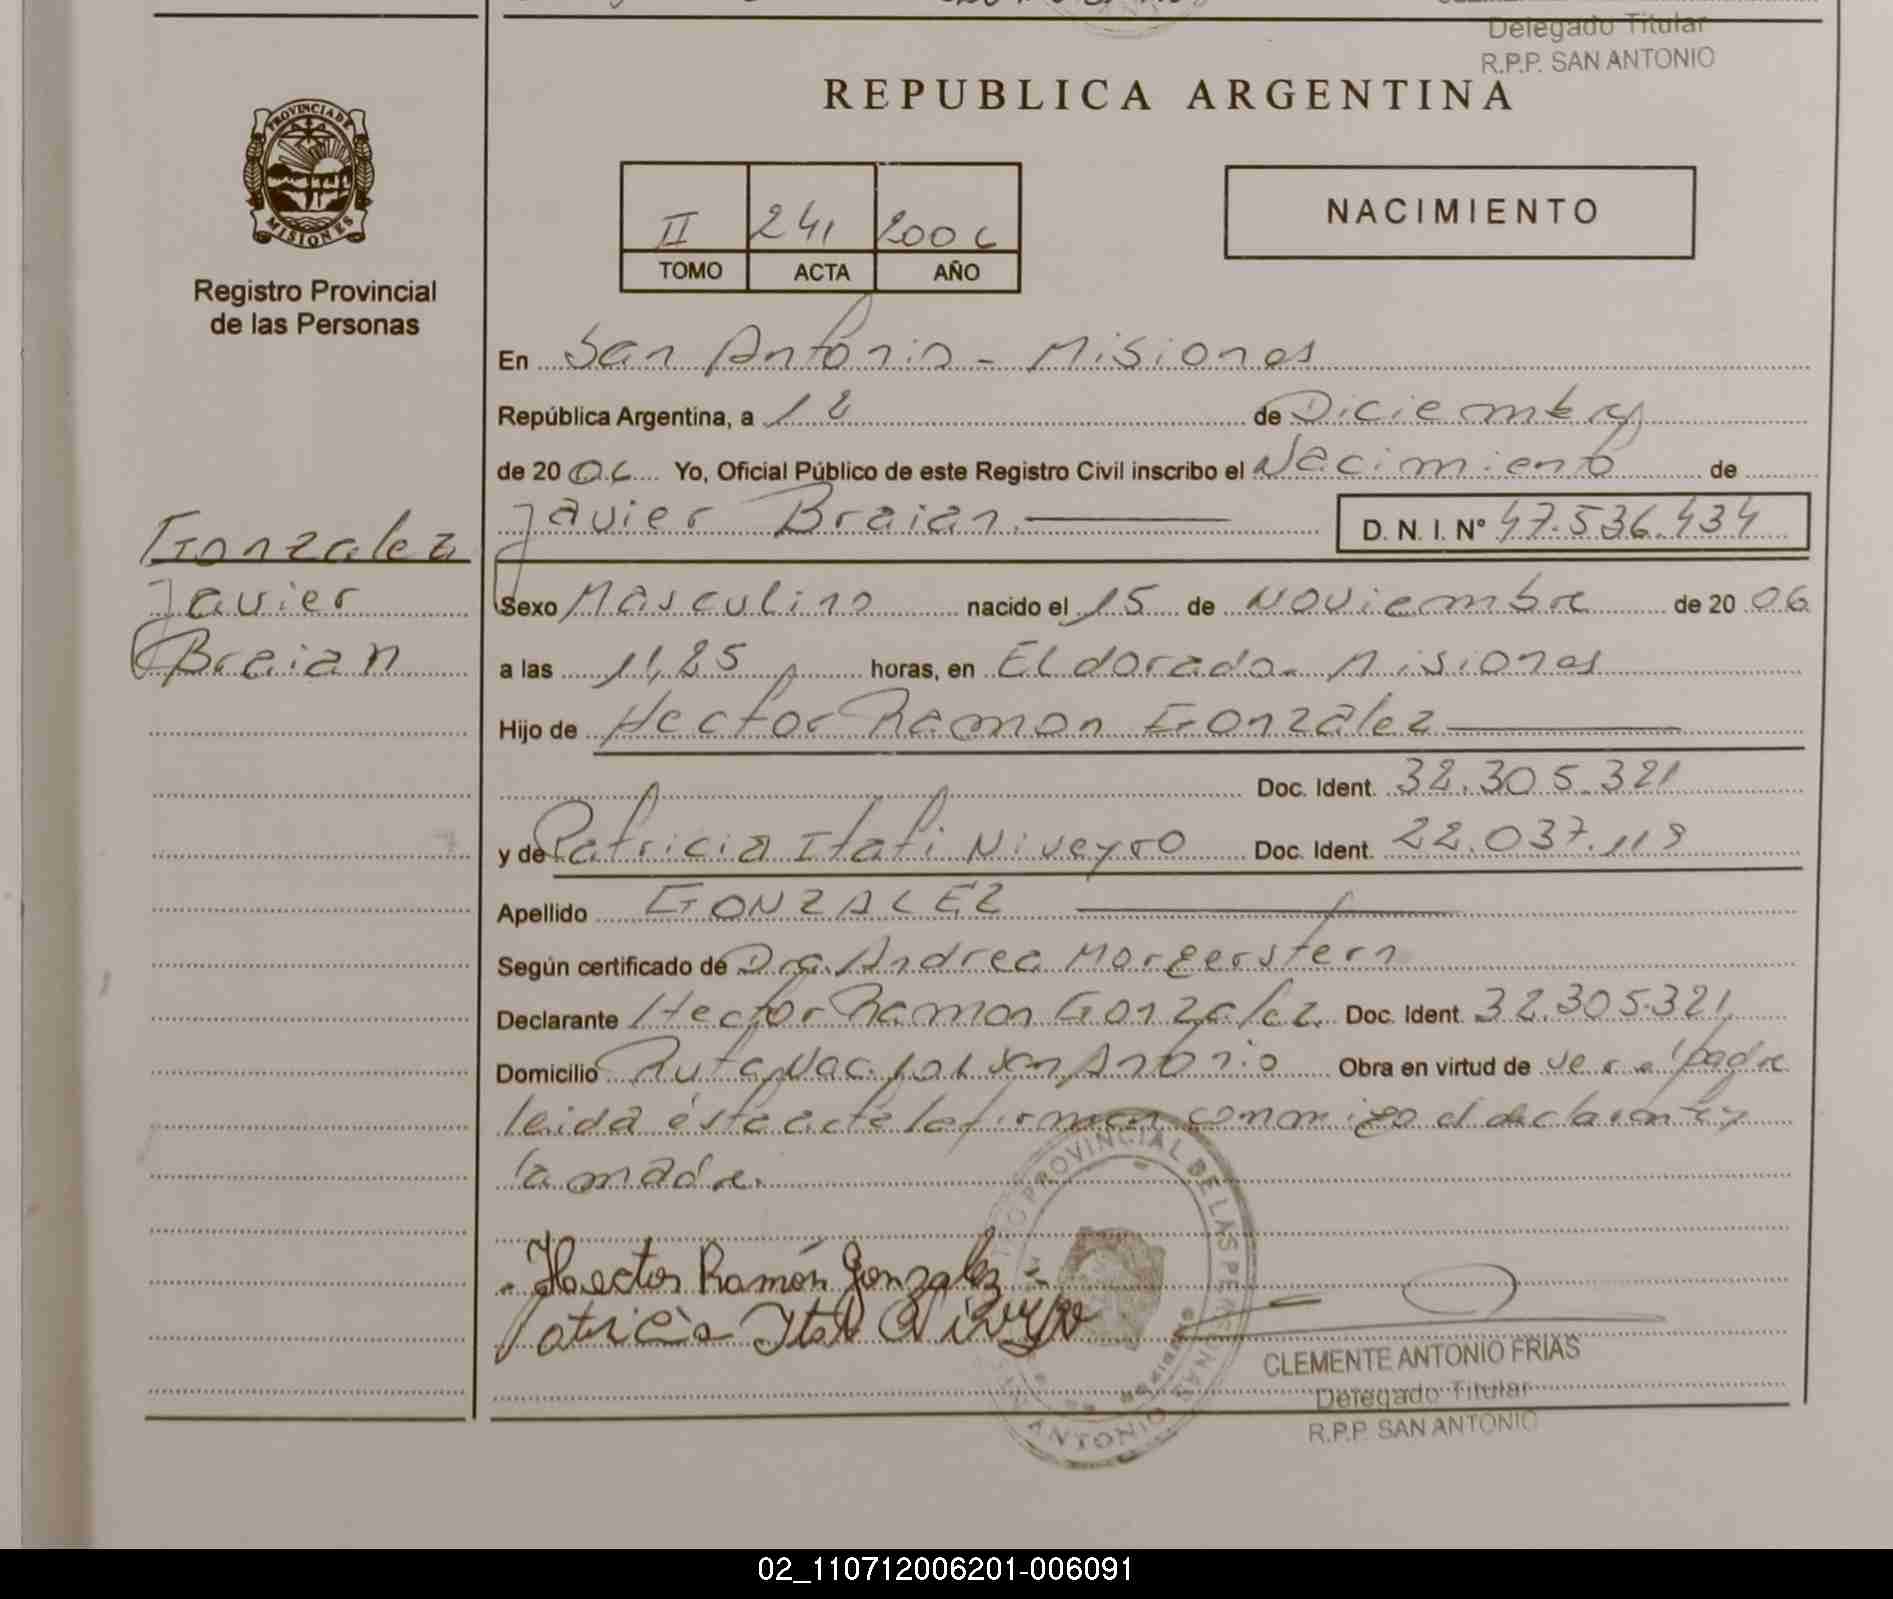 Delegado Titular
R.P.P. SAN ANTONIO
REPUBLICA ARGENTINA
PROVINCIA DE
MISIONES
Registro Provincial
de las Personas
II 241 2006
TOMO ACTA AÑO
NACIMIENTO
En San Antonio - Misiones
República Argentina, a 12 de Diciembre
de 2006 Yo, Oficial Público de este Registro Civil inscribo el Nacimiento de
Javier Braian. D. N. I. Nº 47.536.434
Gonzalez
Javier
Braian
Sexo Masculino nacido el 15 de Noviembre de 2006
a las 11,25 horas, en Eldorado - Misiones
Hijo de Hector Ramon Gonzalez
Doc. Ident. 32.305.321
y de Patricia Itati Niveyro Doc. Ident. 22.037.119
Apellido GONZALEZ
Según certificado de Dra. Andrea Morgerstern
Declarante Hector Ramon Gonzalez Doc. Ident. 32.305.321
Domicilio Ruta Nac. 101 San Antonio Obra en virtud de ser el padre
leida ésta acta la firman conmigo el declarante y
la madre.
Hector Ramón Gonzalez
Patricia Itati Niveyro
PROVINCIAL DE LAS PERSONAS
SAN ANTONIO
CLEMENTE ANTONIO FRIAS
Delegado Titular
R.P.P. SAN ANTONIO
02_110712006201-006091